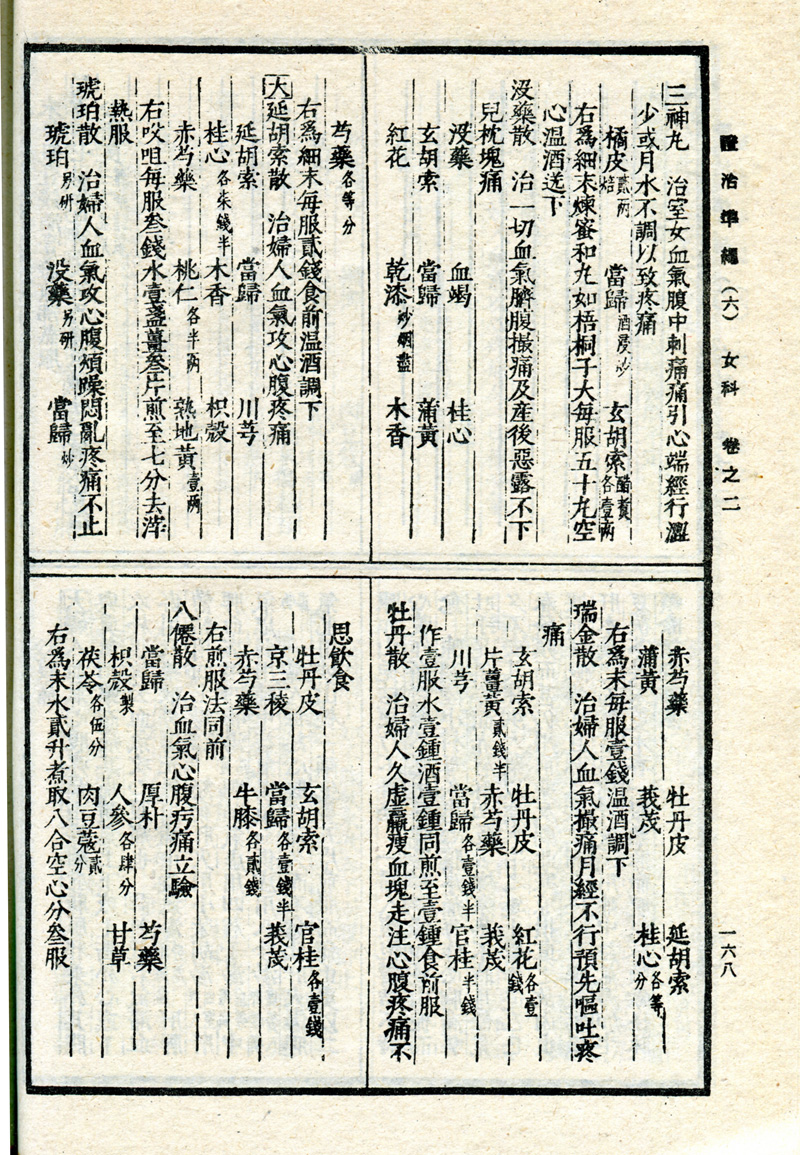 證治準繩（六）　女科　卷之二
三神丸　治室女血氣腹中刺痛痛引心端經行澀
少或月水不調以致疼痛
橘皮貳兩焙　當歸酒浸炒　玄胡索醋煑各壹兩
右爲細末煉蜜和丸如梧桐子大每服五十丸空
心温酒送下
没藥散　治一切血氣臍腹撮痛及産後惡露不下
兒枕塊痛
没藥　血竭　桂心
玄胡索　當歸　蒲黄
紅花　乾漆炒烟盡　木香
芍藥各等分
右爲細末每服貳錢食前温酒調下
大延胡索散　治婦人血氣攻心腹疼痛
延胡索　當歸　川芎
桂心各柒錢半　木香　枳殻
赤芍藥　桃仁各半兩　熟地黄壹兩
右㕮咀每服叄錢水壹盞薑叄片煎至七分去滓
熱服
琥珀散　治婦人血氣攻心腹煩躁悶亂疼痛不止
琥珀另研　没藥另研　當歸炒
赤芍藥　牡丹皮　延胡索
蒲黄　莪茂　桂心各等分
右爲末每服壹錢温酒調下
瑞金散　治婦人血氣撮痛月經不行預先嘔吐疼
痛
玄胡索　牡丹皮　紅花各壹錢
片薑黄貳錢半　赤芍藥　莪茂
川芎　當歸各壹錢半　官桂半錢
作壹服水壹鍾酒壹鍾同煎至壹鍾食前服
牡丹散　治婦人久虚羸瘦血塊走注心腹疼痛不
思飲食
牡丹皮　玄胡索　官桂各壹錢
京三稜　當歸各壹錢半　莪茂
赤芍藥　牛膝各貳錢
右煎服法同前
八僊散　治血氣心腹疞痛立驗
當歸　厚朴　芍藥
枳殻製　人參各肆分　甘草
茯苓各伍分　肉豆蔻貳分
右爲末水貳升煮取八合空心分叄服
一六八